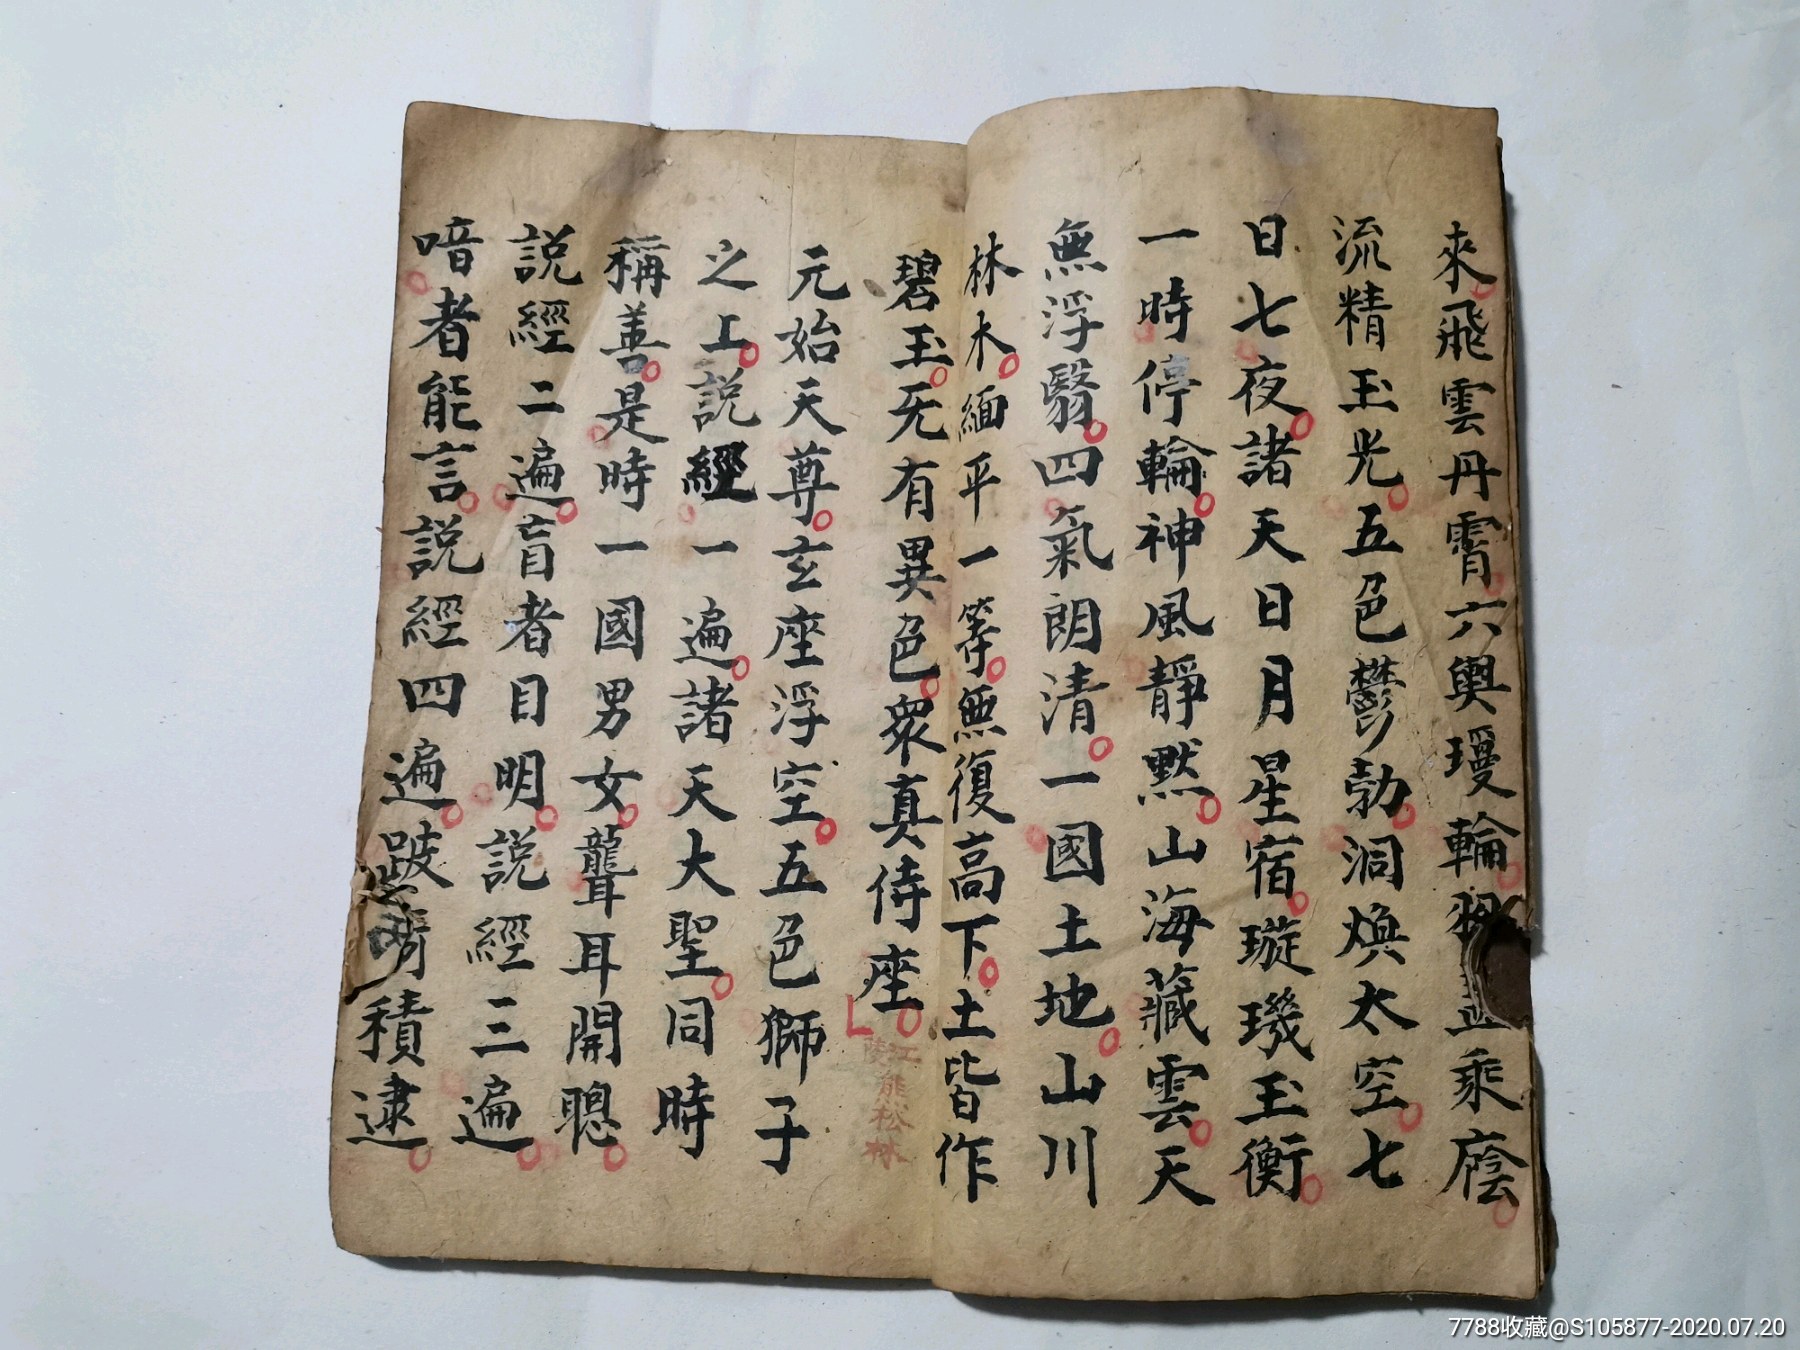 來飛雲丹霄六輿瓊輪羽蓋乘廕
流精玉光五色鬱勃洞煥太空七
日七夜諸天日月星宿璇璣玉衡
一時停輪神風靜默山海藏雲天
無浮翳四氣朗清一國土地山川
林木緬平一等無復高下土皆作
碧玉无有異色眾真侍座
江陵熊松林
元始天尊玄座浮空五色獅子
之上說經一遍諸天大聖同時
稱善是時一國男女聾耳開聰
說經二遍盲者目明說經三遍
喑者能言說經四遍跛積逮
7788收藏@S105877-2020.07.20